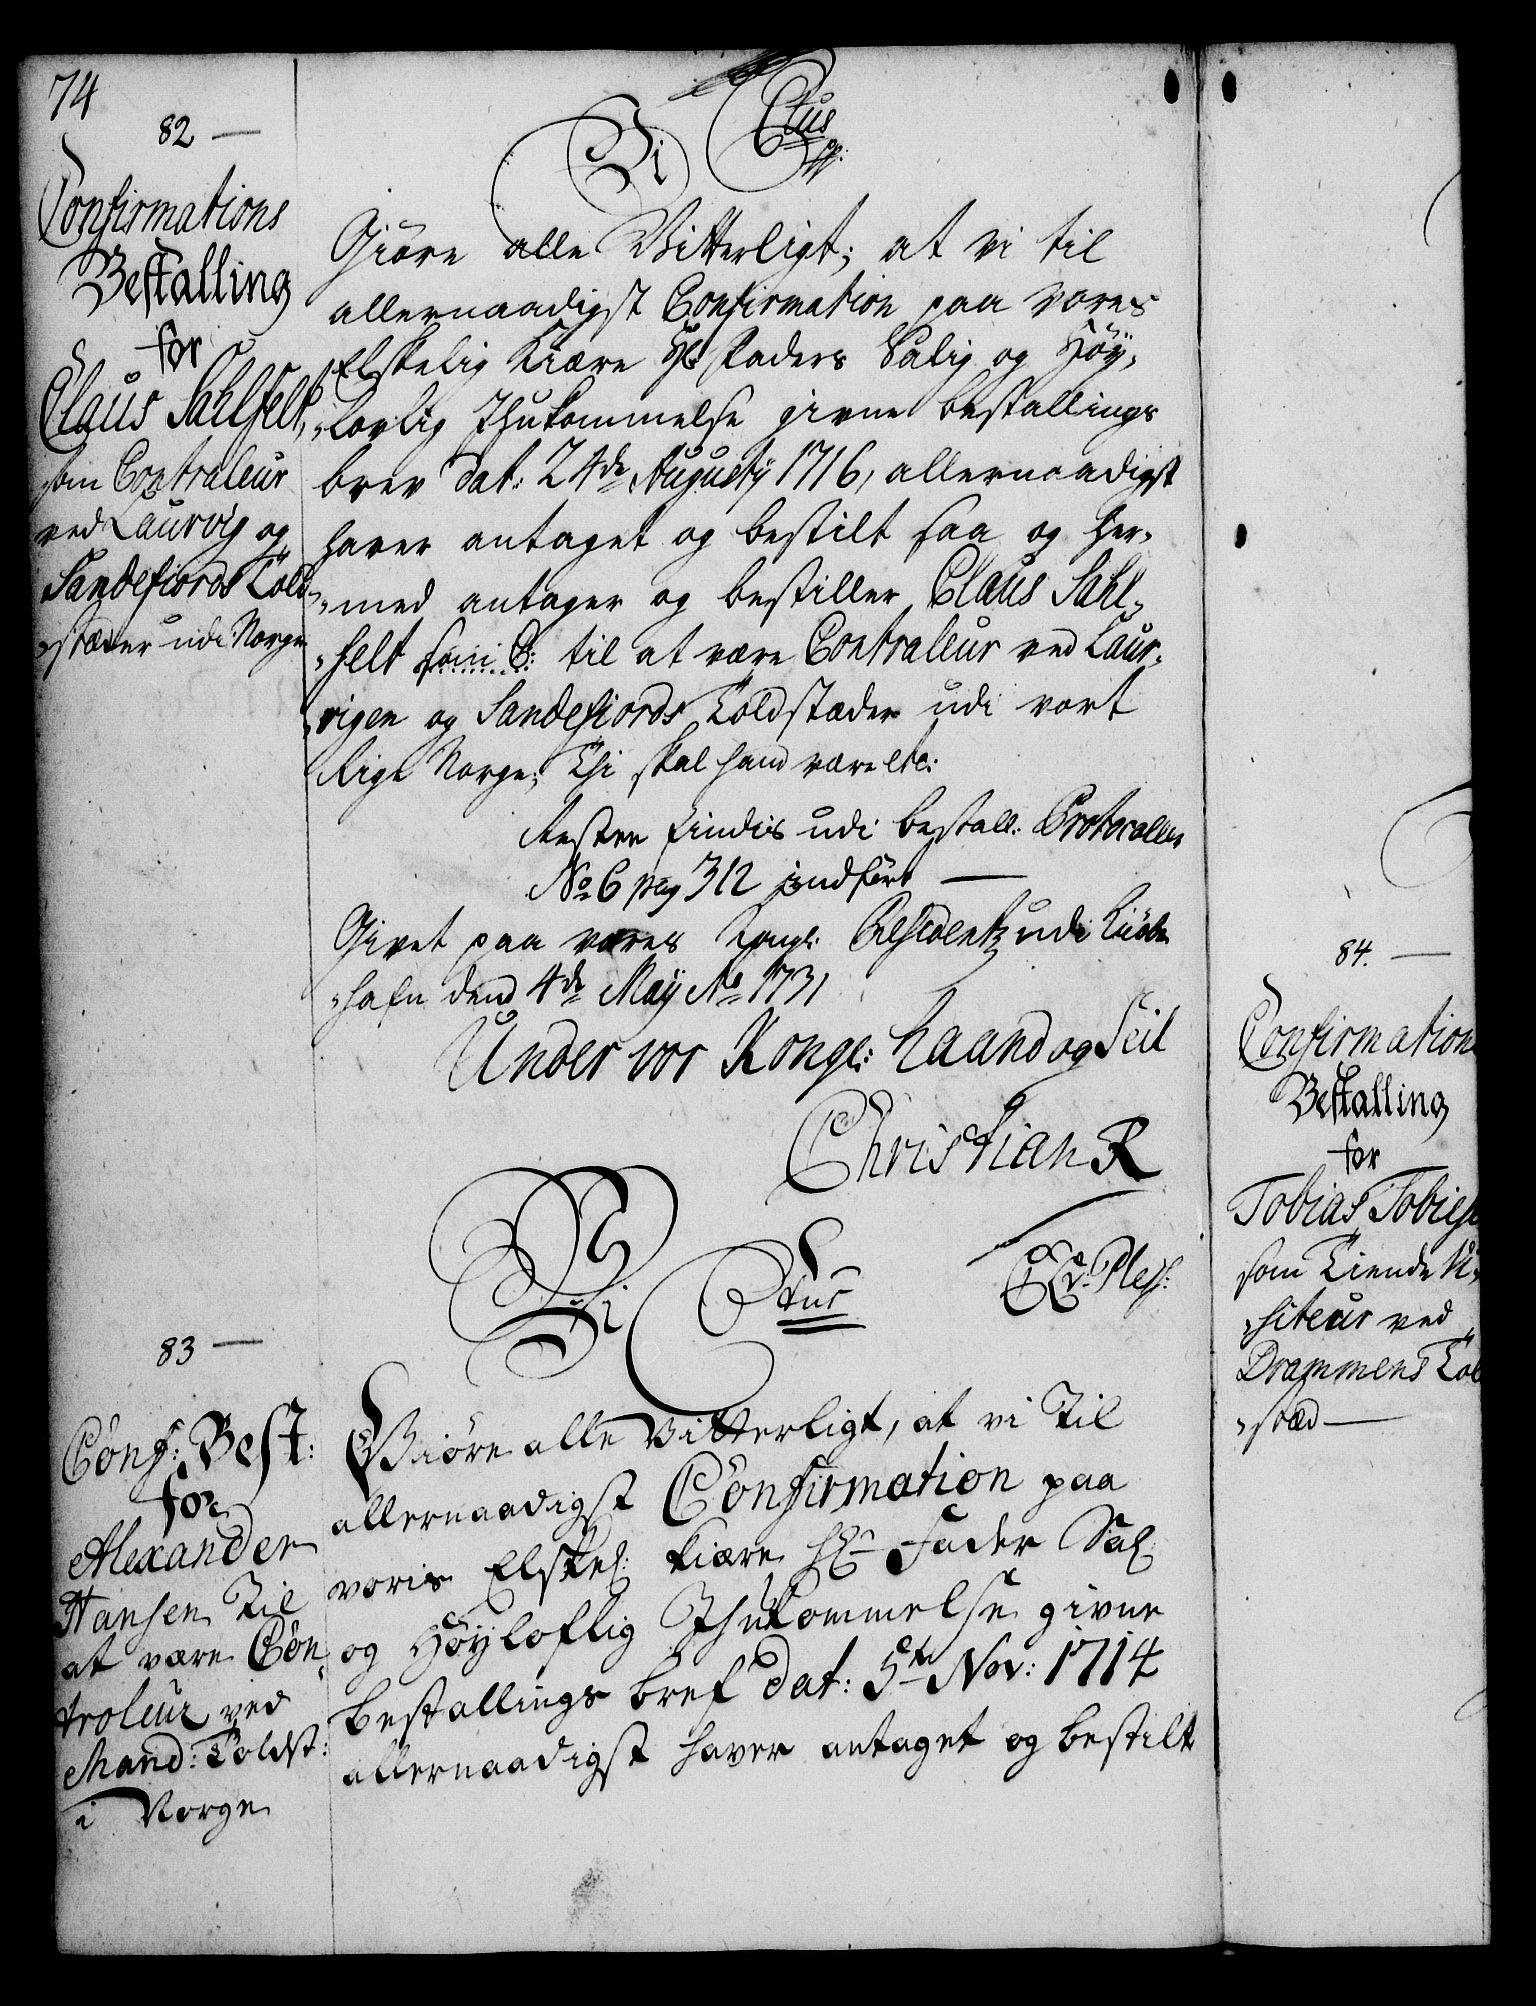 74
82 —
Confirmations
Bestalling
for
Claus Sahlfelt,
som Contraleur
ved Laurvig og
Sandefiords Told-
„stæder udi Norge
Vi Ctus
pp:
Giöre alle Vitterligt; at vi til
allernaadigst Confirmation paa vores
Elskelig Kiære Hr Faders Salig og Höy-
„lovlig Ihukommelse givne bestallings
brev dat: 24de Augusty 1716, allernaadigst
haver antaget og bestilt saa og her-
„med antager og bestiller Claus Sahl-
„felt som C: til at være Contraleur ved Laur-
„vigen og Sandefiords Toldstæder udi vort
Rige Norge; Thi skal hand være etc:
Resten findis udi bestall: Protocollen
No 6 pag 312 indfört —
Givet paa vores Kongl: Residentz udi Kiöben
„hafn dend 4de Maÿ Ao 1731
Under vor Kongl: haand og Seil
Christian R
CAv: Pless:
83 —
Conf: Best:
for
Alexander
Hansen Til
at være Con-
troleur ved
Mand: Toldst:
i Norge
Vi Ctus
Giöre alle Vitterligt, at vi Til
allernaadigst Confirmation paa
voris Elskel: kiære Hr Fader Sal:
og Höyloflig Ihukommelse givne
bestallings bref dat: 5t Nov: 1714
allernaadigst haver antaget og bestilt
84. —
Confirmation
Bestalling
for
Tobias Tobies
som Tiende Vi-
„siteur ved
Drammens Tol
„stæd —